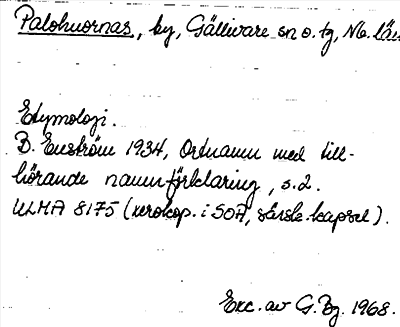 Palohuornas, by, Gällivare sn o. tg, Nb. län
Etymologi.
B. Enström 1934, Ortnamn med till-
hörande namnförklaring, s. 2.
ULMA 8175 (xerokop. i SOA, särsk. kapsel).
Exc. av G. Bg. 1968.